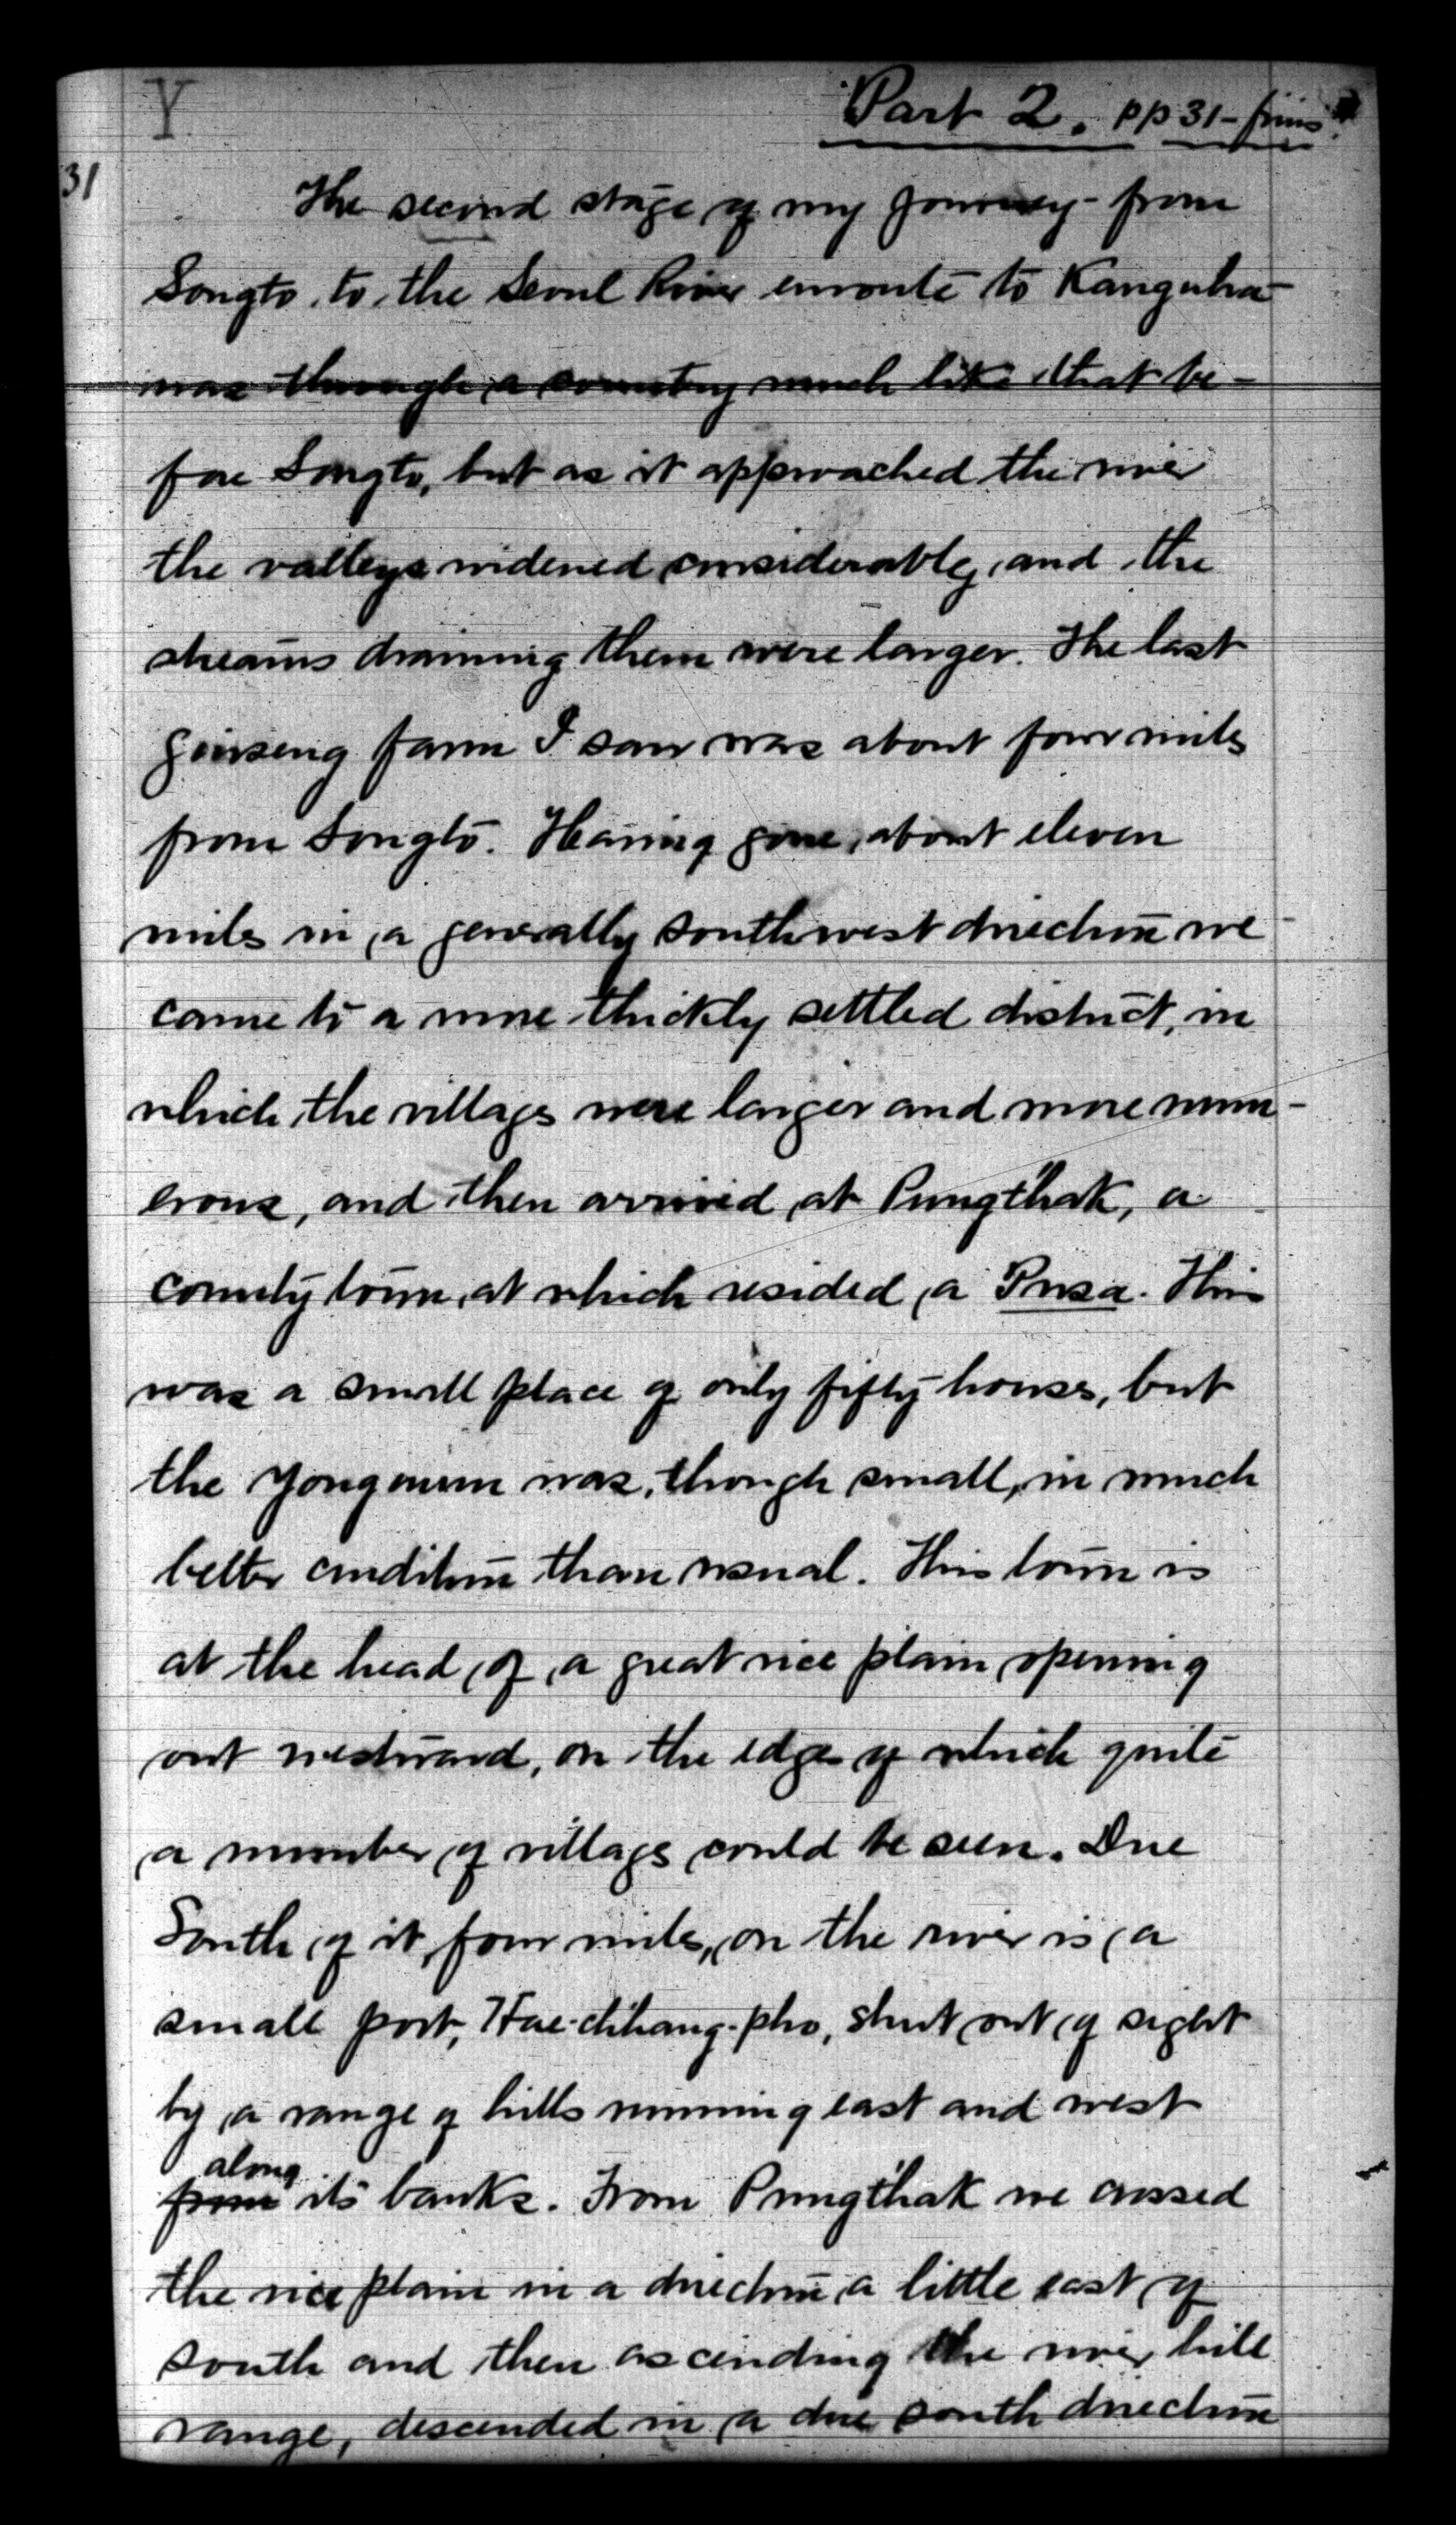 Y
"Part 2. pp 31-finis"
31
The second stage of my journey - from
Songto, to the Seoul River enroute to Kangwha -
was through a country much like that be-
fore Songto, but as it approached the river
the valleys widened considerably, and the
streams draining them were larger. The last
ginseng farm I saw was about four miles
from Songto. Having gone about eleven
miles in a generally southwest direction we
came to a more thickly settled district, in
which the villages were larger and more num-
erous, and then arrived at Pungthak, a
county town, at which resided a Pusa. This
was a small place of only fifty houses, but
the Yongmun was, though small, in much
better condition than usual. This town is
at the head of a great rice plain opening
out westward, on the edge of which quite
a number of villages could be seen. Due
South of it, four miles, on the river is a
small port, Hae-chhang-pho, shut out of sight
by a range of hills running east and west
along
from its banks. From Pungthak we crossed
the rice plain in a direction a little east of
south and then ascending the river hill
range, descended in a due south direction